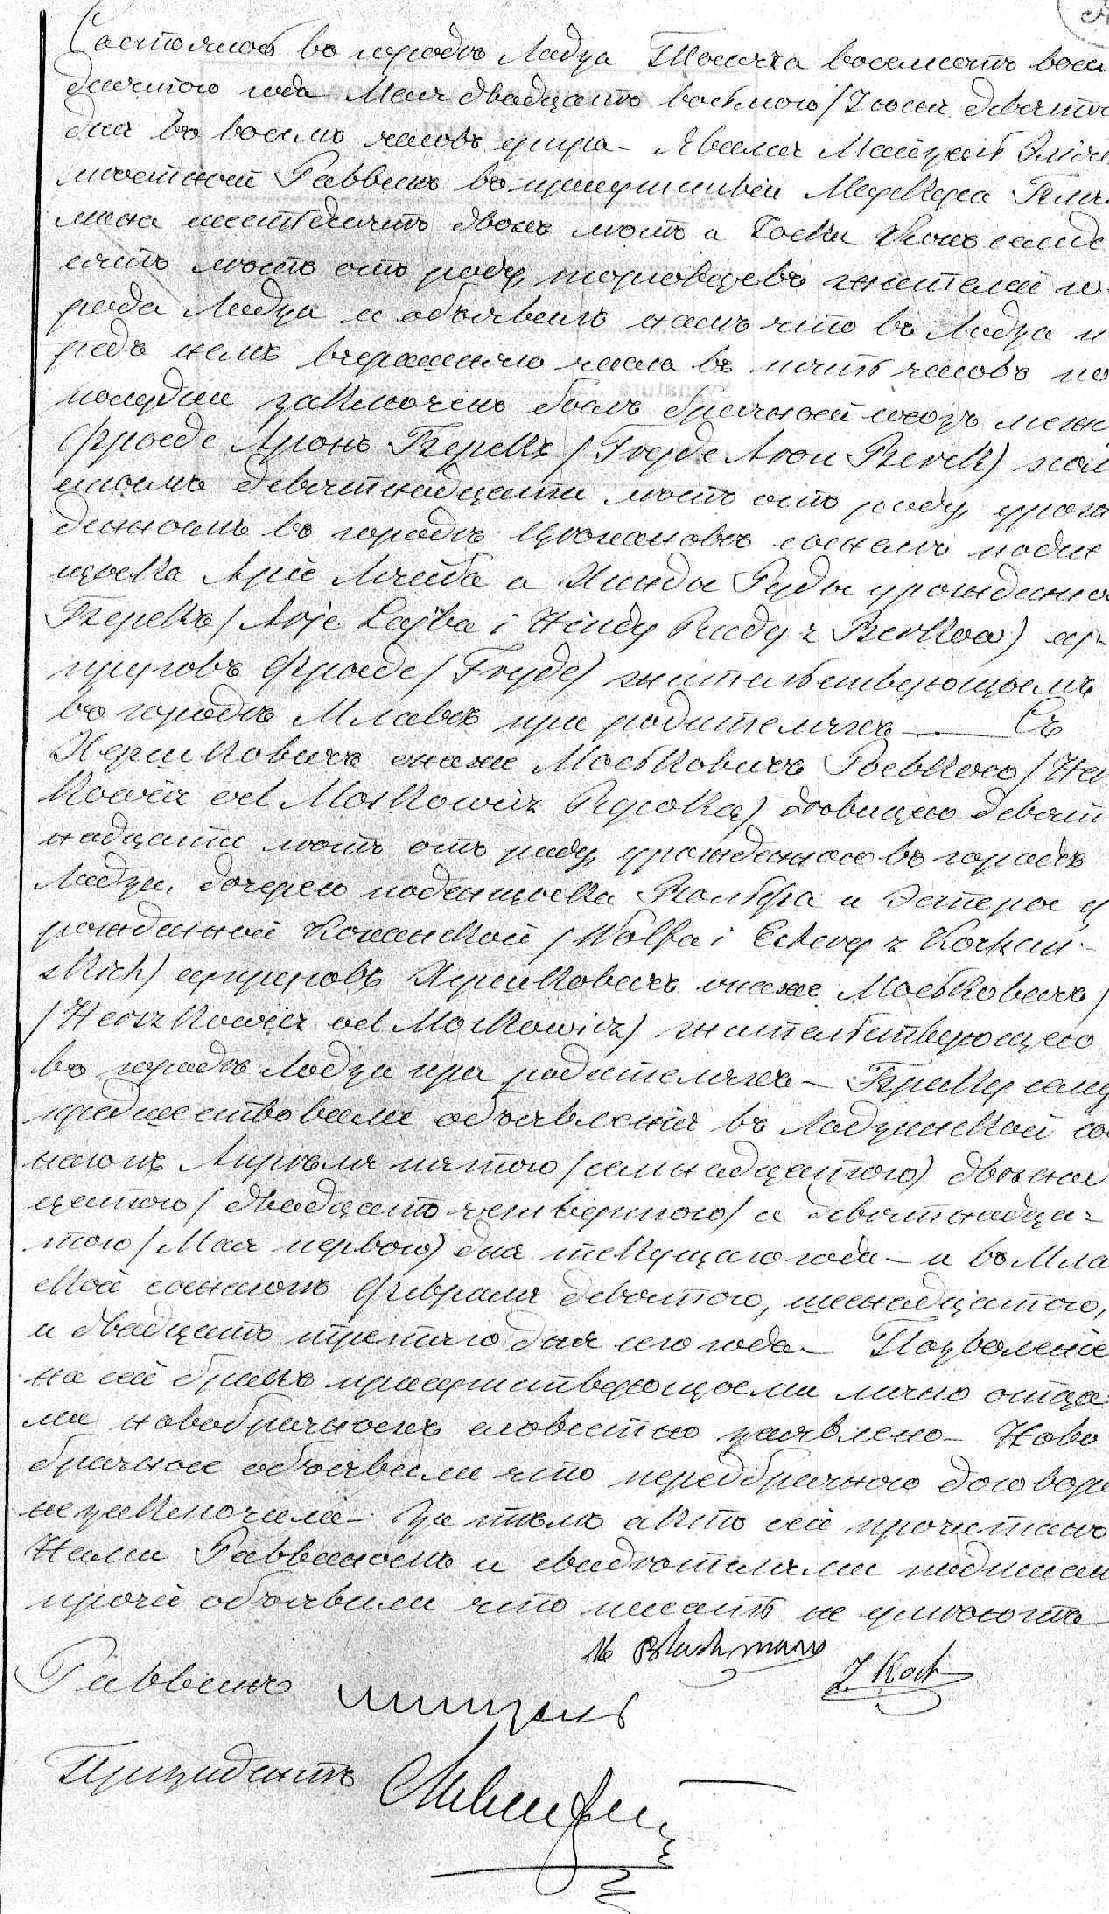 Состоялось въ городѣ Лодзи Тысяча восемьсотъ восем
десятого года Мая двадцать восьмого / Іюня девятого
дня въ восемь часовъ утра – Явился Майзель Эліяш
мѣстный Раввинъ въ присутствіи Меркера Блях-
мана шестьдесятъ двохъ лѣтъ и Іоска Кохъ семде
сятъ лѣтъ отъ роду, торговцевъ жителей го-
рода Лодзи и объявилъ намъ что въ Лодзи п
редъ нимъ вчерашняго числа въ пять часовъ по
полудни заключенъ былъ брачный союзъ меж
Фрыде Аронъ Беркъ / Fryde Aron Berek) хол
стымъ девятнадцати лѣтъ отъ роду, урож
деннымъ въ городѣ Цѣхановѣ сыномъ поден
щика Арій Лейба и Хинда Руды урожденно
Беркъ / Arje Lajba i Hindy Rudy z Berków) су-
пруговъ Фрыде / Fryde) жительствующимъ
въ городѣ Млавѣ при родителяхъ — Съ
Хершковичъ иначе Моськовичъ Рывкою / Her
kowicz vel Moskowicz Rywka) дѣвицею девят
надцати лѣтъ отъ роду, урожденною въ городѣ
Лодзи, дочерью поденщика Вольфа и Эстеры у
рожденной Коханской / Wolfa i Estery z Kochań-
skich) супруговъ Хершковичъ иначе Моськовичъ /
/ Herszkowicz vel Moskowicz) жительствующею
въ городѣ Лодзи при родителяхъ – Браку сему
предшествовали объявленія въ Лодзинской си
нагогѣ Апрѣля пятого / семнадцатого) двѣнад
цатого / двадцать четвертого / и девятнадца-
того / Мая первого) дня текущаго года – и въ Млав
ской синагогѣ Февраля девятого, шеснадцатого,
и двадцать третьяго дня сего года – Позволеніе
на сей бракъ присутствующими лично отца
ми новобрачныхъ словестно заявлено – Ново
брачные объявили что передбрачного договора
не заключили – За тѣмъ актъ сей прочитанъ
Нами Раввиномъ и свидѣтелями подписан
прочіе объявили что писать не умѣютъ
M Blachmann
J. Koch
Раввинъ
Президентъ